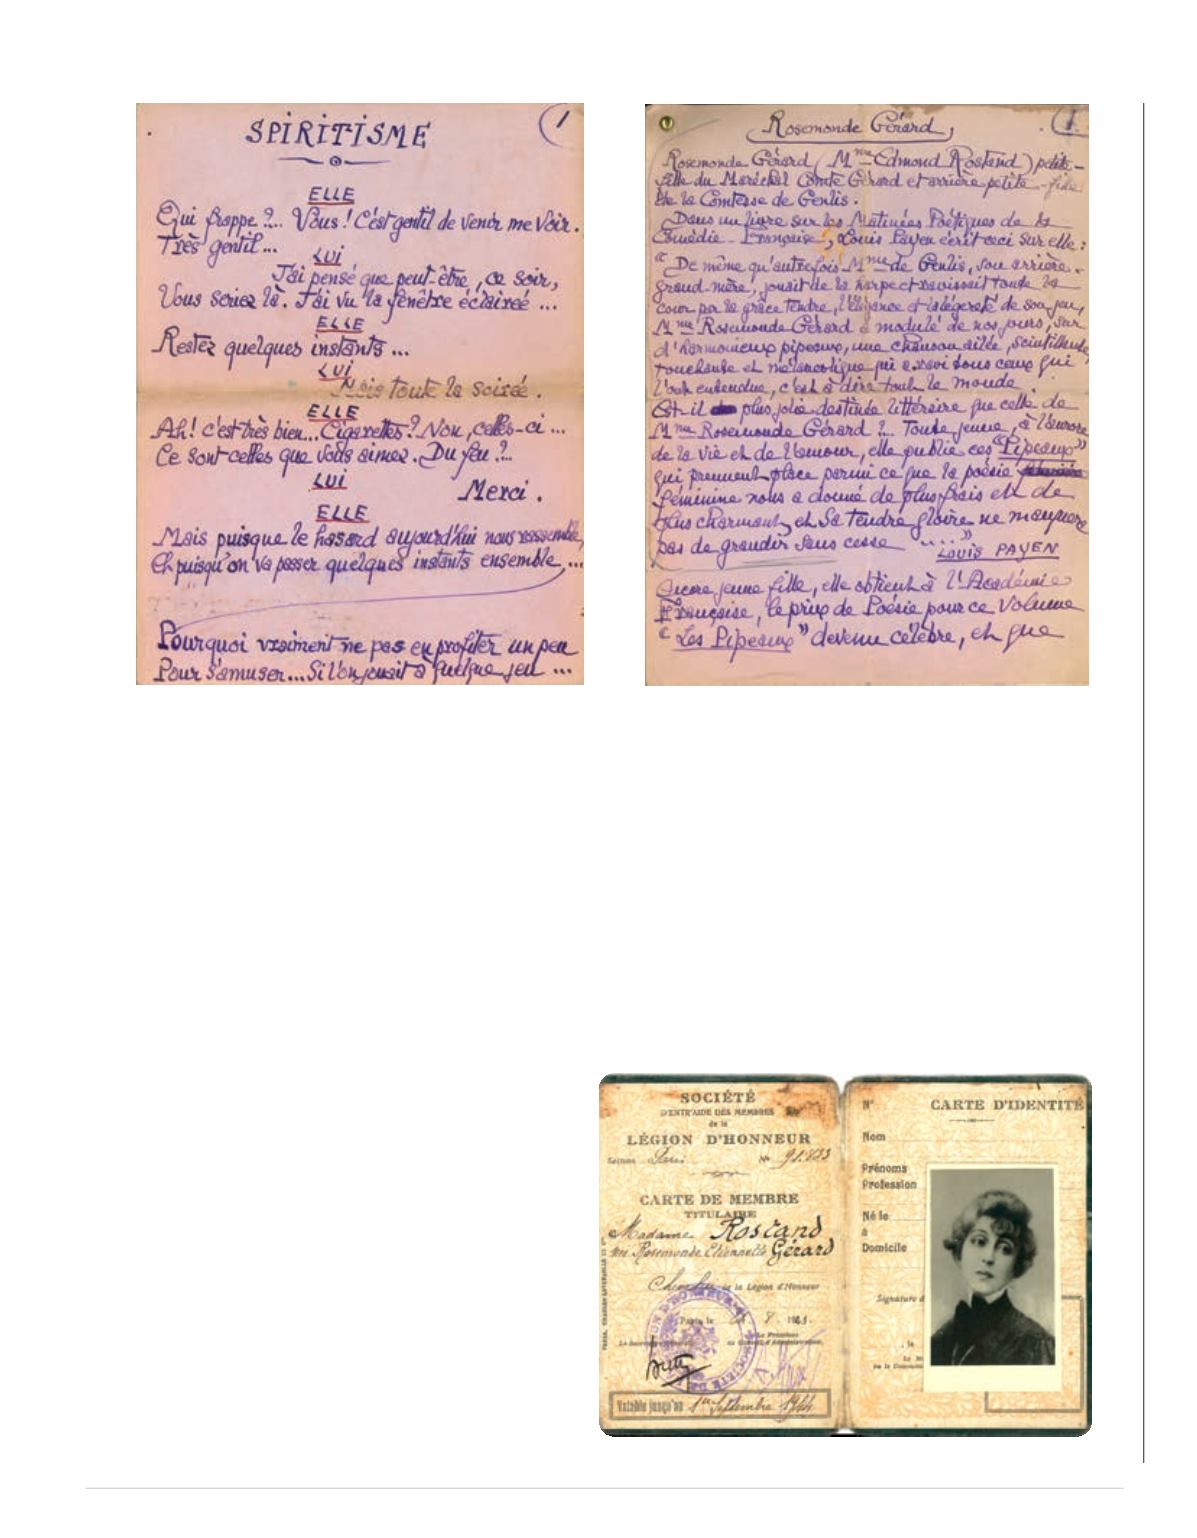 SPIRITISME
1
ELLE
Qui frappe ?... Vous ! C'est gentil de venir me voir.
Très gentil...
LUI
J'ai pensé que peut-être, ce soir,
Vous seriez là. J'ai vu la fenêtre éclairée ...
ELLE
Restez quelques instants ...
LUI
Mais toute la soirée.
ELLE
Ah! c'est très bien... Cigarettes ? Non, celles-ci ...
Ce sont celles que vous aimez. Du feu ?...
LUI
Merci.
ELLE
Mais puisque le hasard aujourd'hui nous rassemble,
Et puisqu'on va passer quelques instants ensemble, ...
Pourquoi vraiment ne pas en profiter un peu
Pour s'amuser... Si l'on jouait à quelque jeu ...
Rosemonde Gérard
1
Rosemonde Gérard (Mme Edmond Rostand) petite-
fille du Maréchal Comte Gérard et arrière petite-fille
de la Comtesse de Genlis.
Dans un livre sur les Matinées Poétiques de la
Comédie-Française, Louis Payen écrit ceci sur elle :
" De même qu'autrefois Mme de Genlis, son arrière-
grand-mère, jouait de la harpe et ravissait toute la
cour par la grâce tendre, l'élégance et la légereté de son jeu,
Mme Rosemonde Gérard a modulé de nos jours, sur
d'harmonieux pipeaux, une chanson ailée, scintillante,
touchante et mélancolique qui a ravi tous ceux qui
l'ont entendue, c'est à dire tout le monde.
Est-il plus jolie destinée littéraire que celle de
Mme Rosemonde Gérard ?... Toute jeune, à l'aurore
de la vie et de l'amour, elle publie ces "Pipeaux"
qui prennent place parmi ce que la poésie
féminine nous a donné de plus frais et de
plus charmant, et sa tendre gloire ne manquera
pas de grandir sans cesse ...."
LOUIS PAYEN
Encore jeune fille, elle obtient à l'Académie
Française, le prix de Poésie pour ce volume
" Les Pipeaux " devenu célèbre, et que
SOCIÉTÉ
D'ENTR'AIDE DES MEMBRES
de la
LÉGION D'HONNEUR
Section Paris No 91.833
CARTE DE MEMBRE
TITULAIRE
Madame Rostand
née Rosemonde Etiennette Gérard
de la Légion d'Honneur
Paris le 8
Le Président
du Conseil d'Administration,
Valable jusqu'au 1er Septembre 1944
N° CARTE D'IDENTITÉ
Nom
Prénoms
Profession
Né le
à
Domicile
Signature d
, le